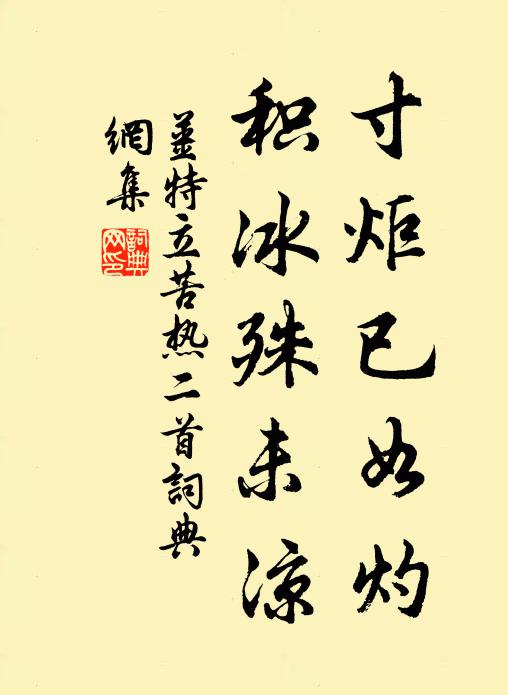 寸炬已如灼
积冰殊未凉
薑特立苦热二首詞典
網集
詞典
网印